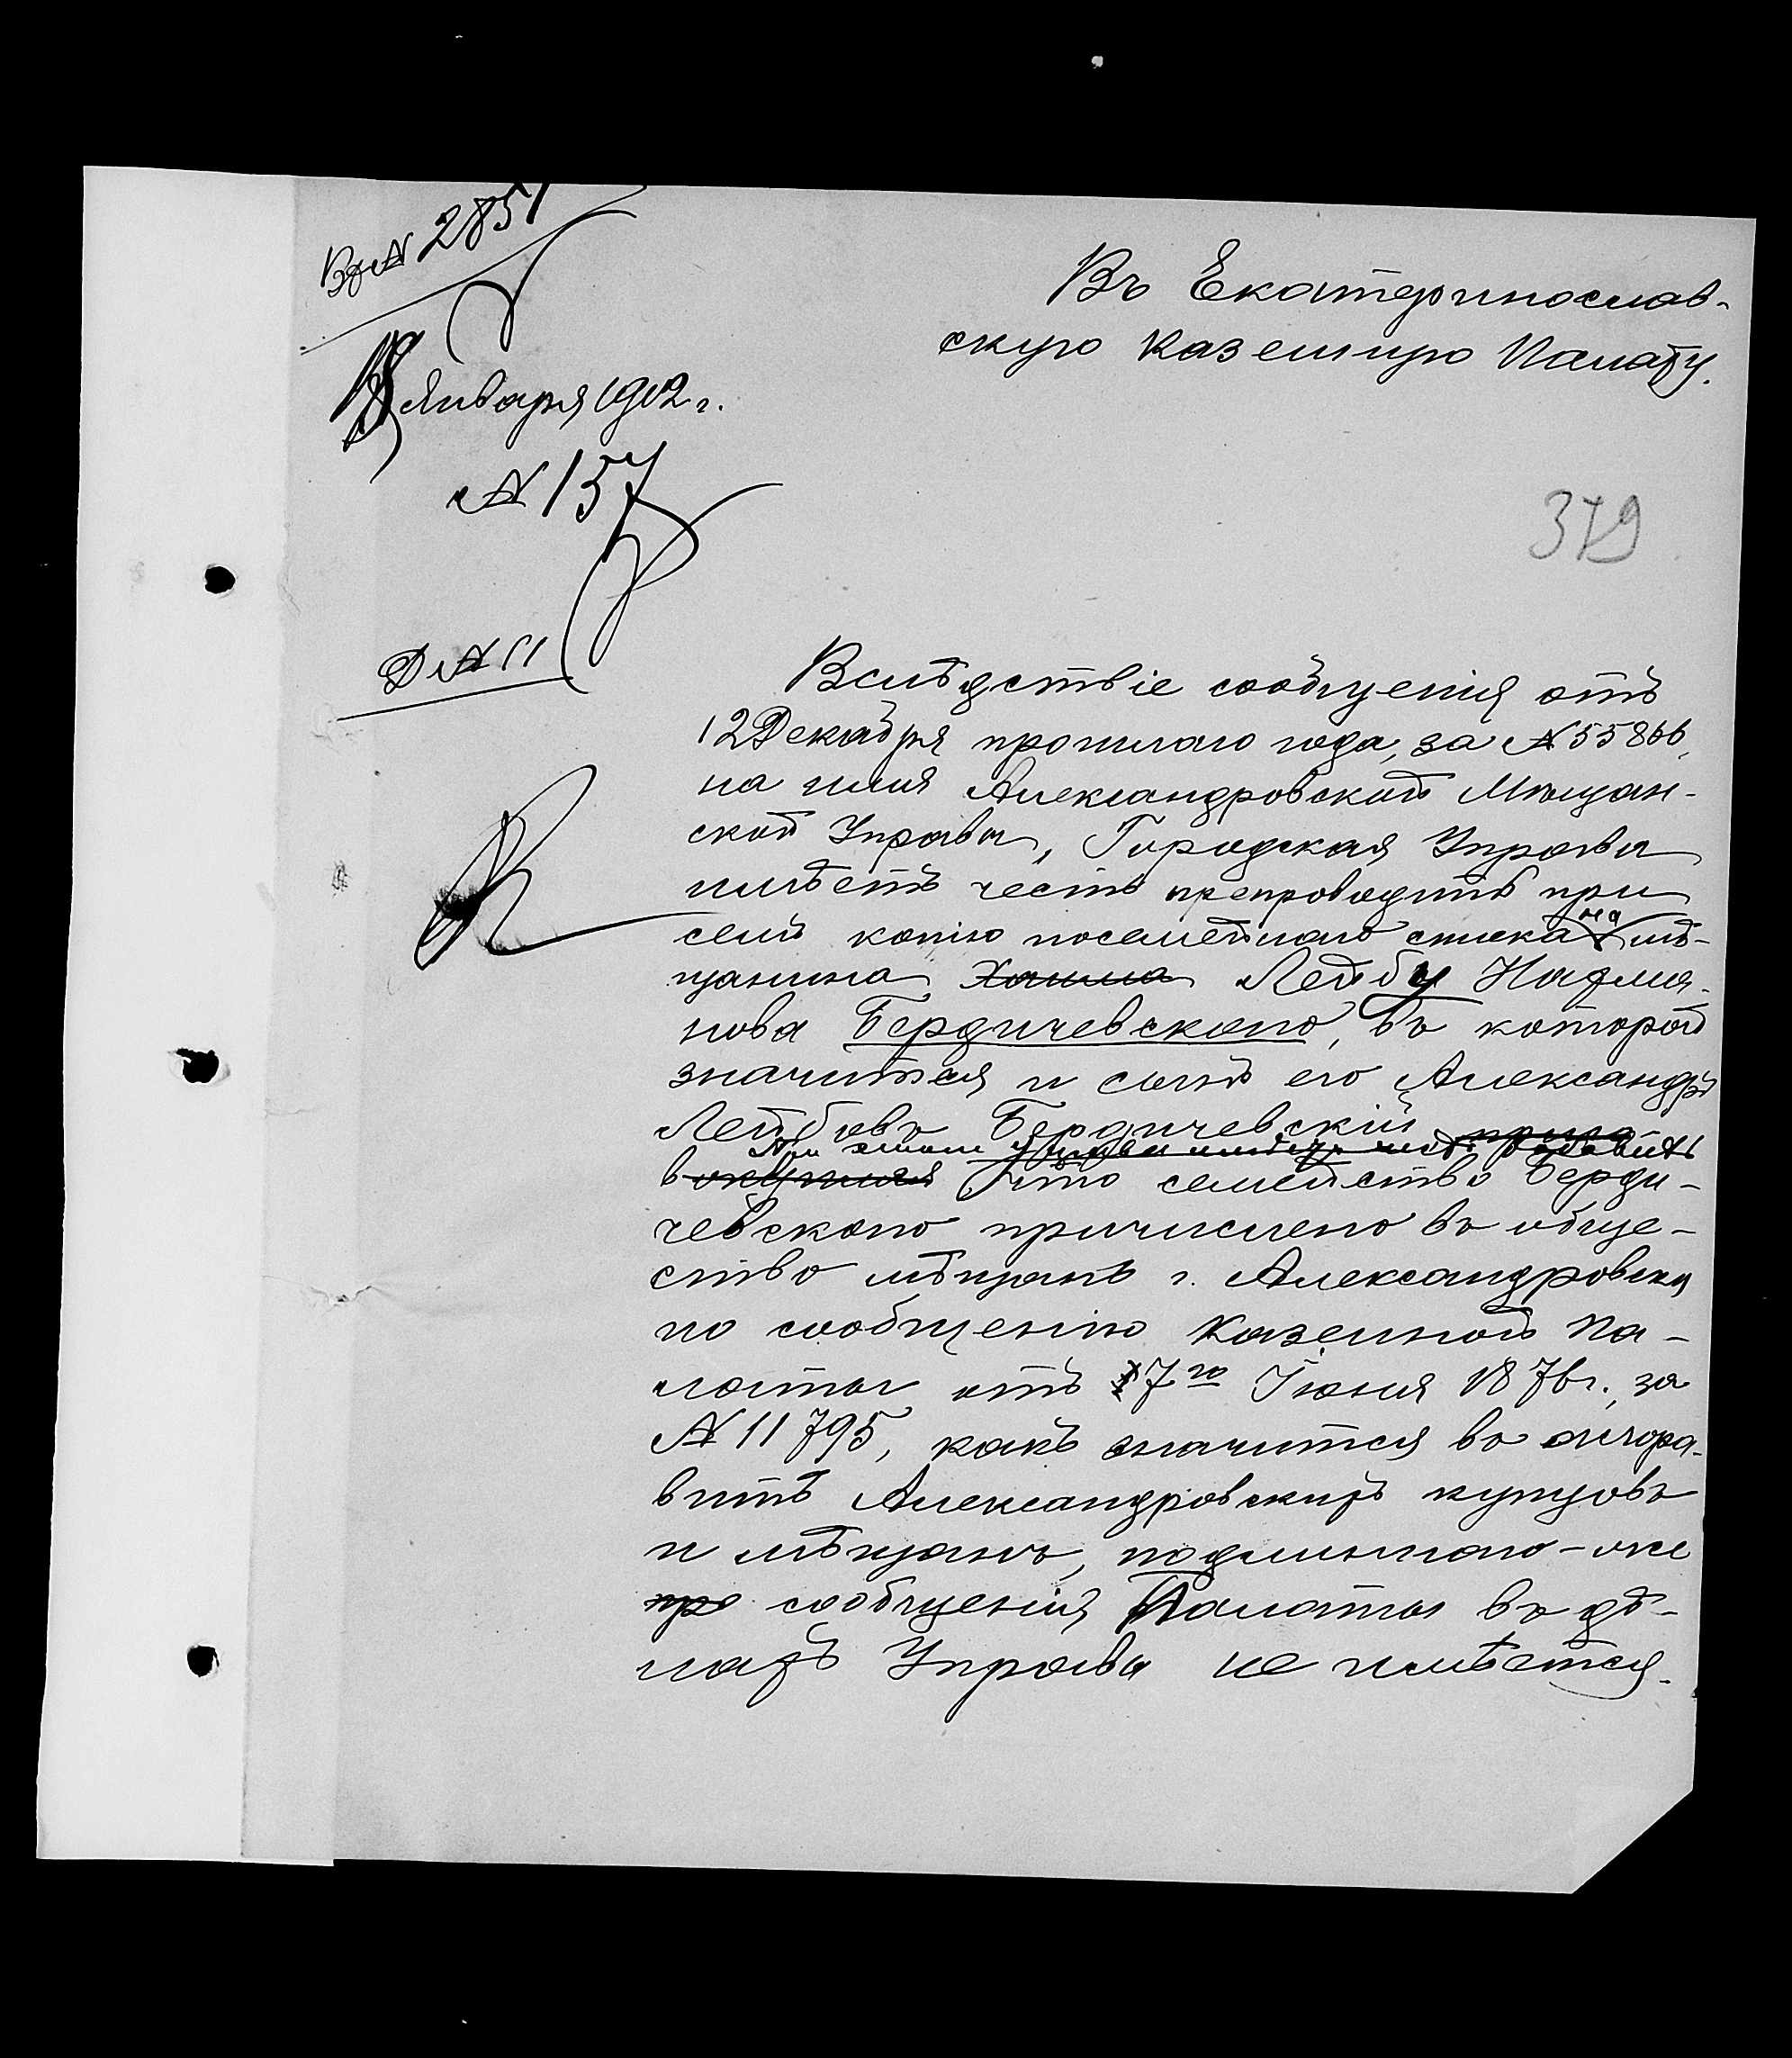 Вх № 2851
Въ Екатеринослав-
скую Казенную Палату.
Января 1912 г.
№ 157
379
Д № 11
Вслѣдствіе сообщенія отъ
12 Декабря прошлаго года, за № 55866,
на имя Александровской Мѣщан-
ской Управы, Городская Управа
имѣетъ честь препроводить при
семъ копію посемейнаго списка на мѣ-
щанина Хаима Лейбу Нахма-
нова Бердичевскаго, въ которой
значится и сынъ его Александръ
Лейбовъ Бердичевскій
При этомъ Управа имѣетъ честь добавить
что семейство Берди-
чевскаго причислено въ обще-
ство мѣщанъ г. Александровска
по сообщенію Казенной Па-
латы отъ 7го Іюня 1876 г., за
№ 11795, какъ значится въ алфа-
витѣ Александровскихъ купцовъ
и мѣщанъ, подлиннаго-же
про сообщенія Палаты въ дѣ-
лахъ Управы не имѣется.